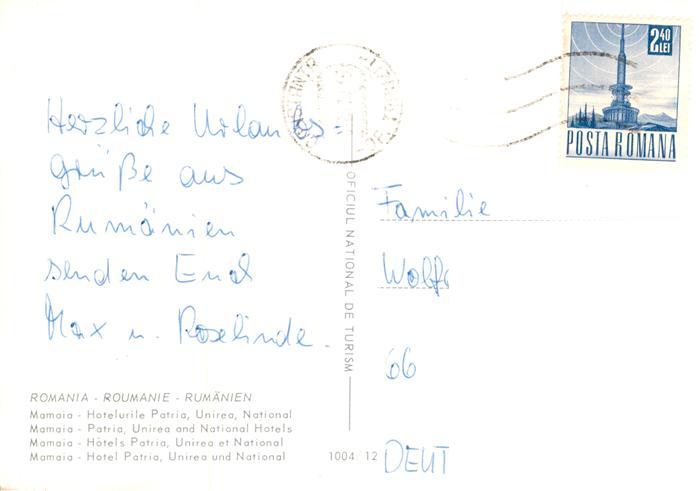 Herzliche Urlaubs=
Grüße aus
Rumänien
senden Euch
Max u. Roselinde.
ROMANIA - ROUMANIE - RUMÄNIEN
Mamaia - Hotelurile Patria, Unirea, National
Mamaia - Patria, Unirea and National Hotels
Mamaia - Hôtels Patria, Unirea et National
Mamaia - Hotel Patria, Unirea und National
OFICIUL NATIONAL DE TURISM
1004 12
240
LEI
POSTA ROMANA
Familie
66
DEUT